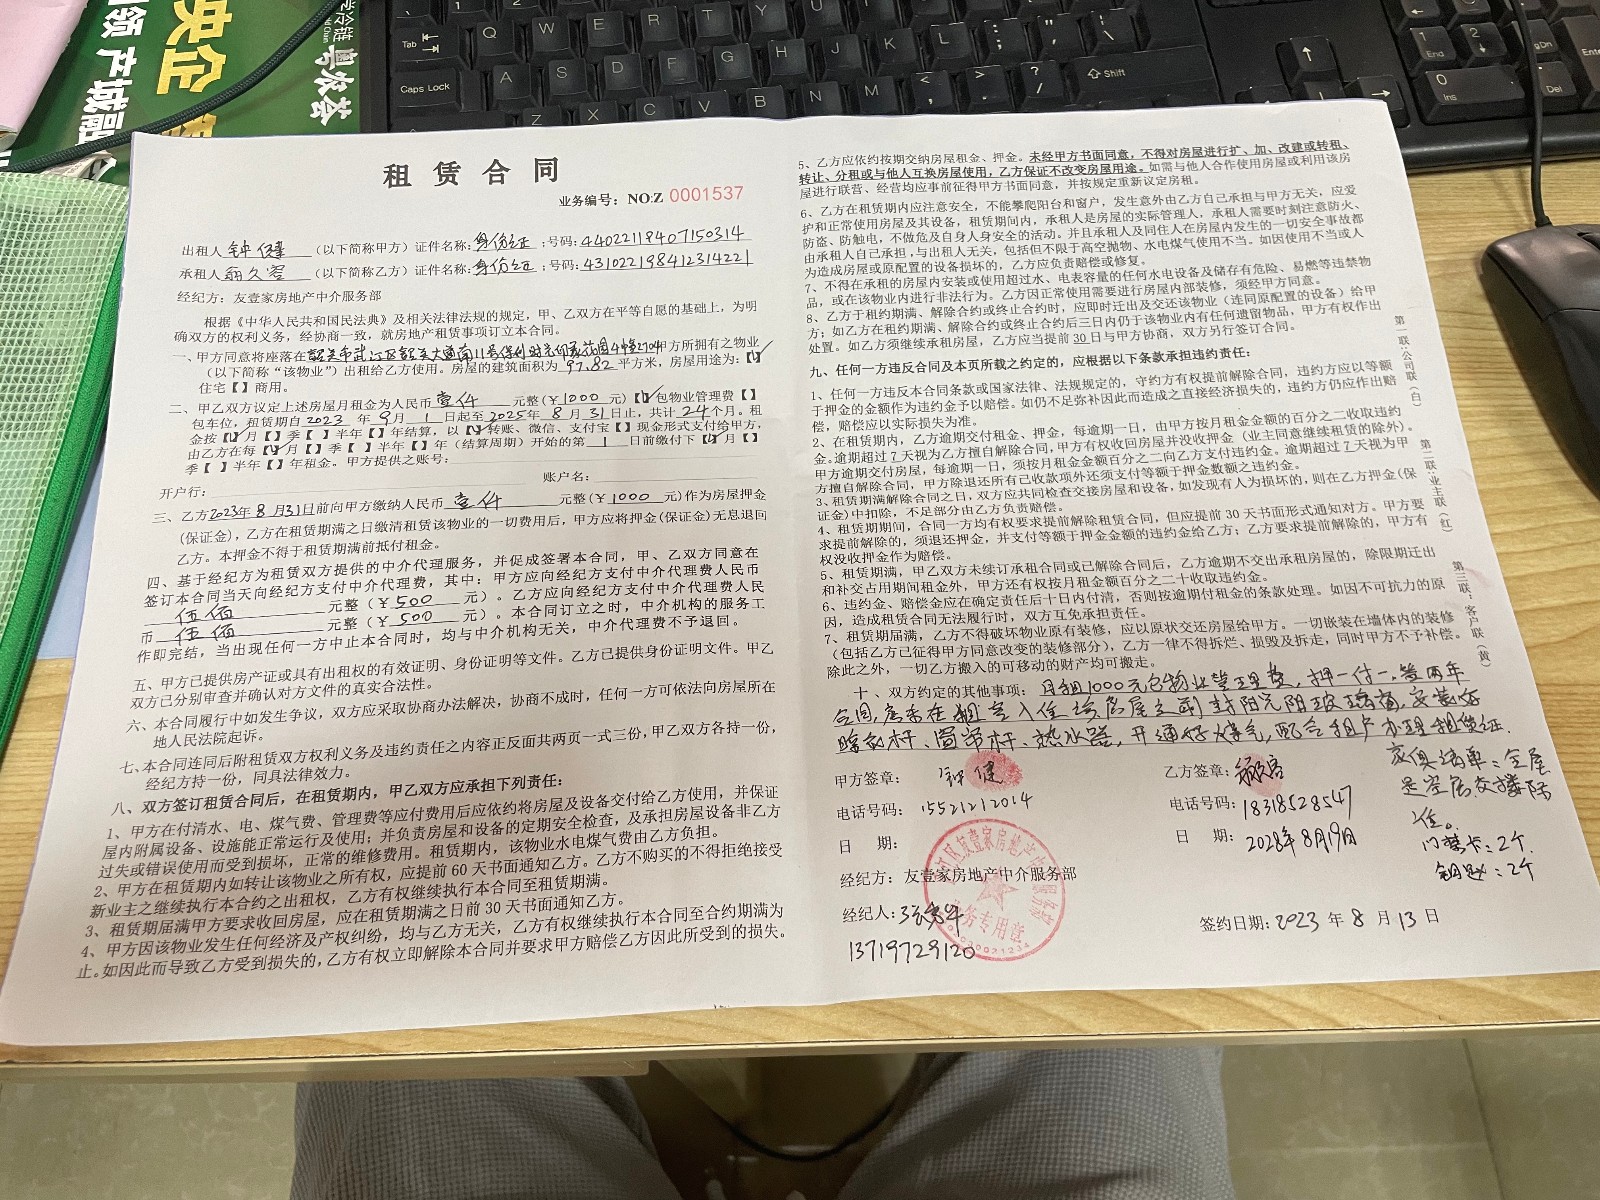 央企
领 产城融
粤农荟
租赁合同
业务编号：NO:Z 0001537
出租人 钟健 （以下简称甲方）证件名称：身份证；号码：440221198407150314
承租人 （以下简称乙方）证件名称：身份证；号码：431022198412314221
经纪方：友壹家房地产中介服务部
根据《中华人民共和国民法典》及相关法律法规的规定，甲、乙双方在平等自愿的基础上，为明
确双方的权利义务，经协商一致，就房地产租赁事项订立本合同。
一、甲方同意将座落在韶关市武江区韶关大道南11号保利时光印象花园4幢2704甲方所拥有之物业
（以下简称“该物业”）出租给乙方使用。房屋的建筑面积为 97.82 平方米，房屋用途为：【√】
住宅【 】商用。
二、甲乙双方议定上述房屋月租金为人民币 壹仟 元整（￥1000 元）【√】包物业管理费【 】
包车位，租赁期自 2023 年 9 月 1 日起至 2025 年 8 月 31 日止，共计 24 个月。租
金按【√】月【 】季【 】半年【 】年结算，以【√】转账、微信、支付宝【 】现金形式支付给甲方，
由乙方在每【√】月【 】季【 】半年【 】年（结算周期）开始的第 1 日前缴付下【√】月【 】
季【 】半年【 】年租金。甲方提供之账号：
开户行： 账户名：
三、乙方2023年8月31日前向甲方缴纳人民币 壹仟 元整（￥1000 元）作为房屋押金
（保证金），乙方在租赁期满之日缴清租赁该物业的一切费用后，甲方应将押金（保证金）无息退回
乙方。本押金不得于租赁期满前抵付租金。
四、基于经纪方为租赁双方提供的中介代理服务，并促成签署本合同，甲、乙双方同意在
签订本合同当天向经纪方支付中介代理费，其中：甲方应向经纪方支付中介代理费人民币
伍佰 元整（￥500 元）。乙方应向经纪方支付中介代理费人民
币 伍佰 元整（￥500 元）。本合同订立之时，中介机构的服务工
作即完结，当出现任何一方中止本合同时，均与中介机构无关，中介代理费不予退回。
五、甲方已提供房产证或具有出租权的有效证明、身份证明等文件。乙方已提供身份证明文件。甲乙
双方已分别审查并确认对方文件的真实合法性。
六、本合同履行中如发生争议，双方应采取协商办法解决，协商不成时，任何一方可依法向房屋所在
地人民法院起诉。
七、本合同连同后附租赁双方权利义务及违约责任之内容正反面共两页一式三份，甲乙双方各持一份，
经纪方持一份，同具法律效力。
八、双方签订租赁合同后，在租赁期内，甲乙双方应承担下列责任：
1、甲方在付清水、电、煤气费、管理费等应付费用后应依约将房屋及设备交付给乙方使用，并保证
屋内附属设备、设施能正常运行及使用；并负责房屋和设备的定期安全检查，及承担房屋设备非乙方
过失或错误使用而受到损坏，正常的维修费用。租赁期内，该物业水电煤气费由乙方负担。
2、甲方在租赁期内如转让该物业之所有权，应提前 60 天书面通知乙方。乙方不购买的不得拒绝接受
新业主之继续执行本合约之出租权，乙方有权继续执行本合同至租赁期满。
3、租赁期届满甲方要求收回房屋，应在租赁期满之日前 30 天书面通知乙方。
4、甲方因该物业发生任何经济及产权纠纷，均与乙方无关，乙方有权继续执行本合同至合约期满为
止。如因此而导致乙方受到损失的，乙方有权立即解除本合同并要求甲方赔偿乙方因此所受到的损失。
5、乙方应依约按期交纳房屋租金、押金。未经甲方书面同意，不得对房屋进行扩、加、改建或转租、
转让、分租或与他人互换房屋使用，乙方保证不改变房屋用途。如需与他人合作使用房屋或利用该房
屋进行联营、经营均应事前征得甲方书面同意，并按规定重新议定房租。
6、乙方在租赁期内应注意安全，不能攀爬阳台和窗户，发生意外由乙方自己承担与甲方无关，应爱
护和正常使用房屋及其设备，租赁期间内，承租人是房屋的实际管理人，承租人需要时刻注意防火、
防盗、防触电，不做危及自身人身安全的活动。并且承租人及同住人在房屋内发生的一切安全事故都
由承租人自己承担，与出租人无关，包括但不限于高空抛物、水电煤气使用不当。如因使用不当或人
为造成房屋或原配置的设备损坏的，乙方应负责赔偿或修复。
7、不得在承租的房屋内安装或使用超过水、电表容量的任何水电设备及储存有危险、易燃等违禁物
品，或在该物业内进行非法行为。乙方因正常使用需要进行房屋内部装修，须经甲方同意。
8、乙方于租约期满、解除合约或终止合约时，应即时迁出及交还该物业（连同原配置的设备）给甲
方；如乙方在租约期满、解除合约或终止合约后三日内仍于该物业内有任何遗留物品，甲方有权作出
处置。如乙方须继续承租房屋，乙方应当提前 30 日与甲方协商，双方另行签订合同。
九、任何一方违反合同及本页所载之约定的，应根据以下条款承担违约责任：
1、任何一方违反本合同条款或国家法律、法规规定的，守约方有权提前解除合同，违约方应以等额
于押金的金额作为违约金予以赔偿。如仍不足弥补因此而造成之直接经济损失的，违约方仍应作出赔
偿，赔偿应以实际损失为准。
2、在租赁期内，乙方逾期交付租金、押金，每逾期一日，由甲方按月租金金额的百分之二收取违约
金。逾期超过 7 天视为乙方擅自解除合同，甲方有权收回房屋并没收押金（业主同意继续租赁的除外）。
甲方逾期交付房屋，每逾期一日，须按月租金金额百分之二向乙方支付违约金。逾期超过 7 天视为甲
方擅自解除合同，甲方除退还所有已收款项外还须支付等额于押金数额之违约金。
3、租赁期满解除合同之日，双方应共同检查交接房屋和设备，如发现有人为损坏的，则在乙方押金（保
证金）中扣除，不足部分由乙方负责赔偿。
4、租赁期期间，合同一方均有权要求提前解除租赁合同，但应提前 30 天书面形式通知对方。甲方要
求提前解除的，须退还押金，并支付等额于押金金额的违约金给乙方；乙方要求提前解除的，甲方有
权没收押金作为赔偿。
5、租赁期满，甲乙双方未续订承租合同或已解除合同后，乙方逾期不交出承租房屋的，除限期迁出
和补交占用期间租金外，甲方还有权按月租金额百分之二十收取违约金。
6、违约金、赔偿金应在确定责任后十日内付清，否则按逾期付租金的条款处理。如因不可抗力的原
因，造成租赁合同无法履行时，双方互免承担责任。
7、租赁期届满，乙方不得破坏物业原有装修，应以原状交还房屋给甲方。一切嵌装在墙体内的装修
（包括乙方已征得甲方同意改变的装修部分），乙方一律不得拆烂、损毁及拆走，同时甲方不予补偿。
除此之外，一切乙方搬入的可移动的财产均可搬走。
十、双方约定的其他事项：月租1000元包物业管理费，押一付一，签两年
合同，房东在租客入住该房屋之前封阳光阳玻璃窗，安装好
晾衣杆、窗帘杆、热水器，开通好煤气，配合租户办理租赁证.
家俱清单：全屋
是空房交楼除
住。
门禁卡：2个.
钥匙：2个
甲方签章： 钟健 乙方签章：
电话号码：15521212014 电话号码：18318528547
日 期： 日 期：2028年8月19日
经纪方：友壹家房地产中介服务部
经纪人：
13719729120
签约日期：2023 年 8 月 13 日
第一联：公司联（白）
第二联：业主联（红）
第三联：客户联（黄）